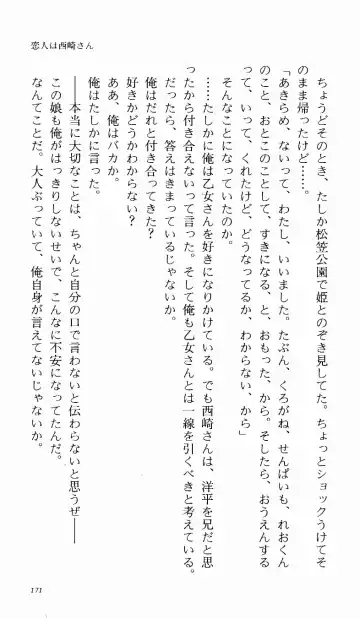 恋人は西崎さん
ちょうどそのとき、たしか松笠公園で姫とのぞき見してた。ちょっとショックうけてそ
のまま帰ったけど……。
「あきらめ、ないって、わたし、いいました。たぶん、くろがね、せんぱいも、れおくん
のこと、おとこのことして、すきになる、と、おもった、から。そしたら、おうえんする
って、いって、くれたけど、どうなってるか、わからない、から」
そんなことになっていたのか。
……たしかに俺は乙女さんを好きになりかけている。でも西崎さんは、洋平を兄だと思
ったから付き合えないって言った。そして俺も乙女さんとは一線を引くべきと考えている。
だったら、答えはきまっているじゃないか。
俺はだれと付き合ってきた?
好きかどうかわからない?
ああ、俺はバカか。
俺はたしかに言った。
――本当に大切なことは、ちゃんと自分の口で言わないと伝わらないと思うぜ――
この娘も俺がはっきりしないせいで、こんなに不安になってたんだ。
なんてことだ。大人ぶっていて、俺自身が言えてないじゃないか。
171